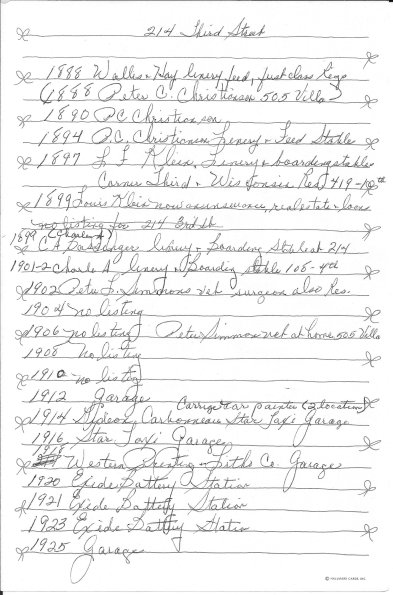 214 Third Street
1888 Wallis & Hay livery feed, first class Rigs
(1888 Peter C. Christianson 505 Villa)
1890 P.C. Christianson
1894 P.C. Christianson Livery & Feed Stable
1897 L F Klein, Livery & boarding stable
Corner Third & Wisconsin Res. 419-10th
1899 Louis Klein now on insurance, real estate & loans
no listing for 214 3rd st
1899 (Charles A)
C A Bassinger livery & Boarding Stable at 214
1901-2 Charles A. livery & Boarding stable 108-4th
1902 Peter F. Simmons vet surgeon also Res.
1904 no listing
1906 no listing) Peter Simmons vet at home 505 Villa
1908 no listing
1910 no listing
1912 Garage
Carriage & car painter (2 locations)
1914 Gideon Carbonneau Star Taxi Garage
1916 Star Taxi Garage
1918
Western Printing & Litho Co. Garage
1920 Exide Battery Station
1921 Exide Battery Station
1923 Exide Battery Station
1925 Garage